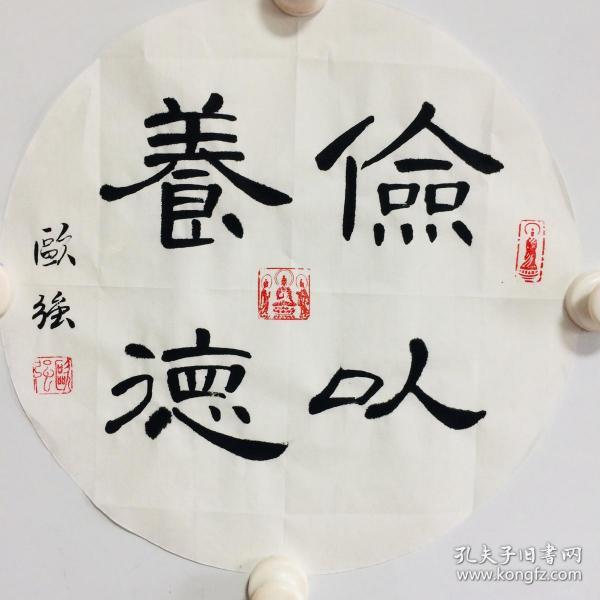 儉以
養德
歐強
歐強
孔夫子旧書网
www.kongfz.com